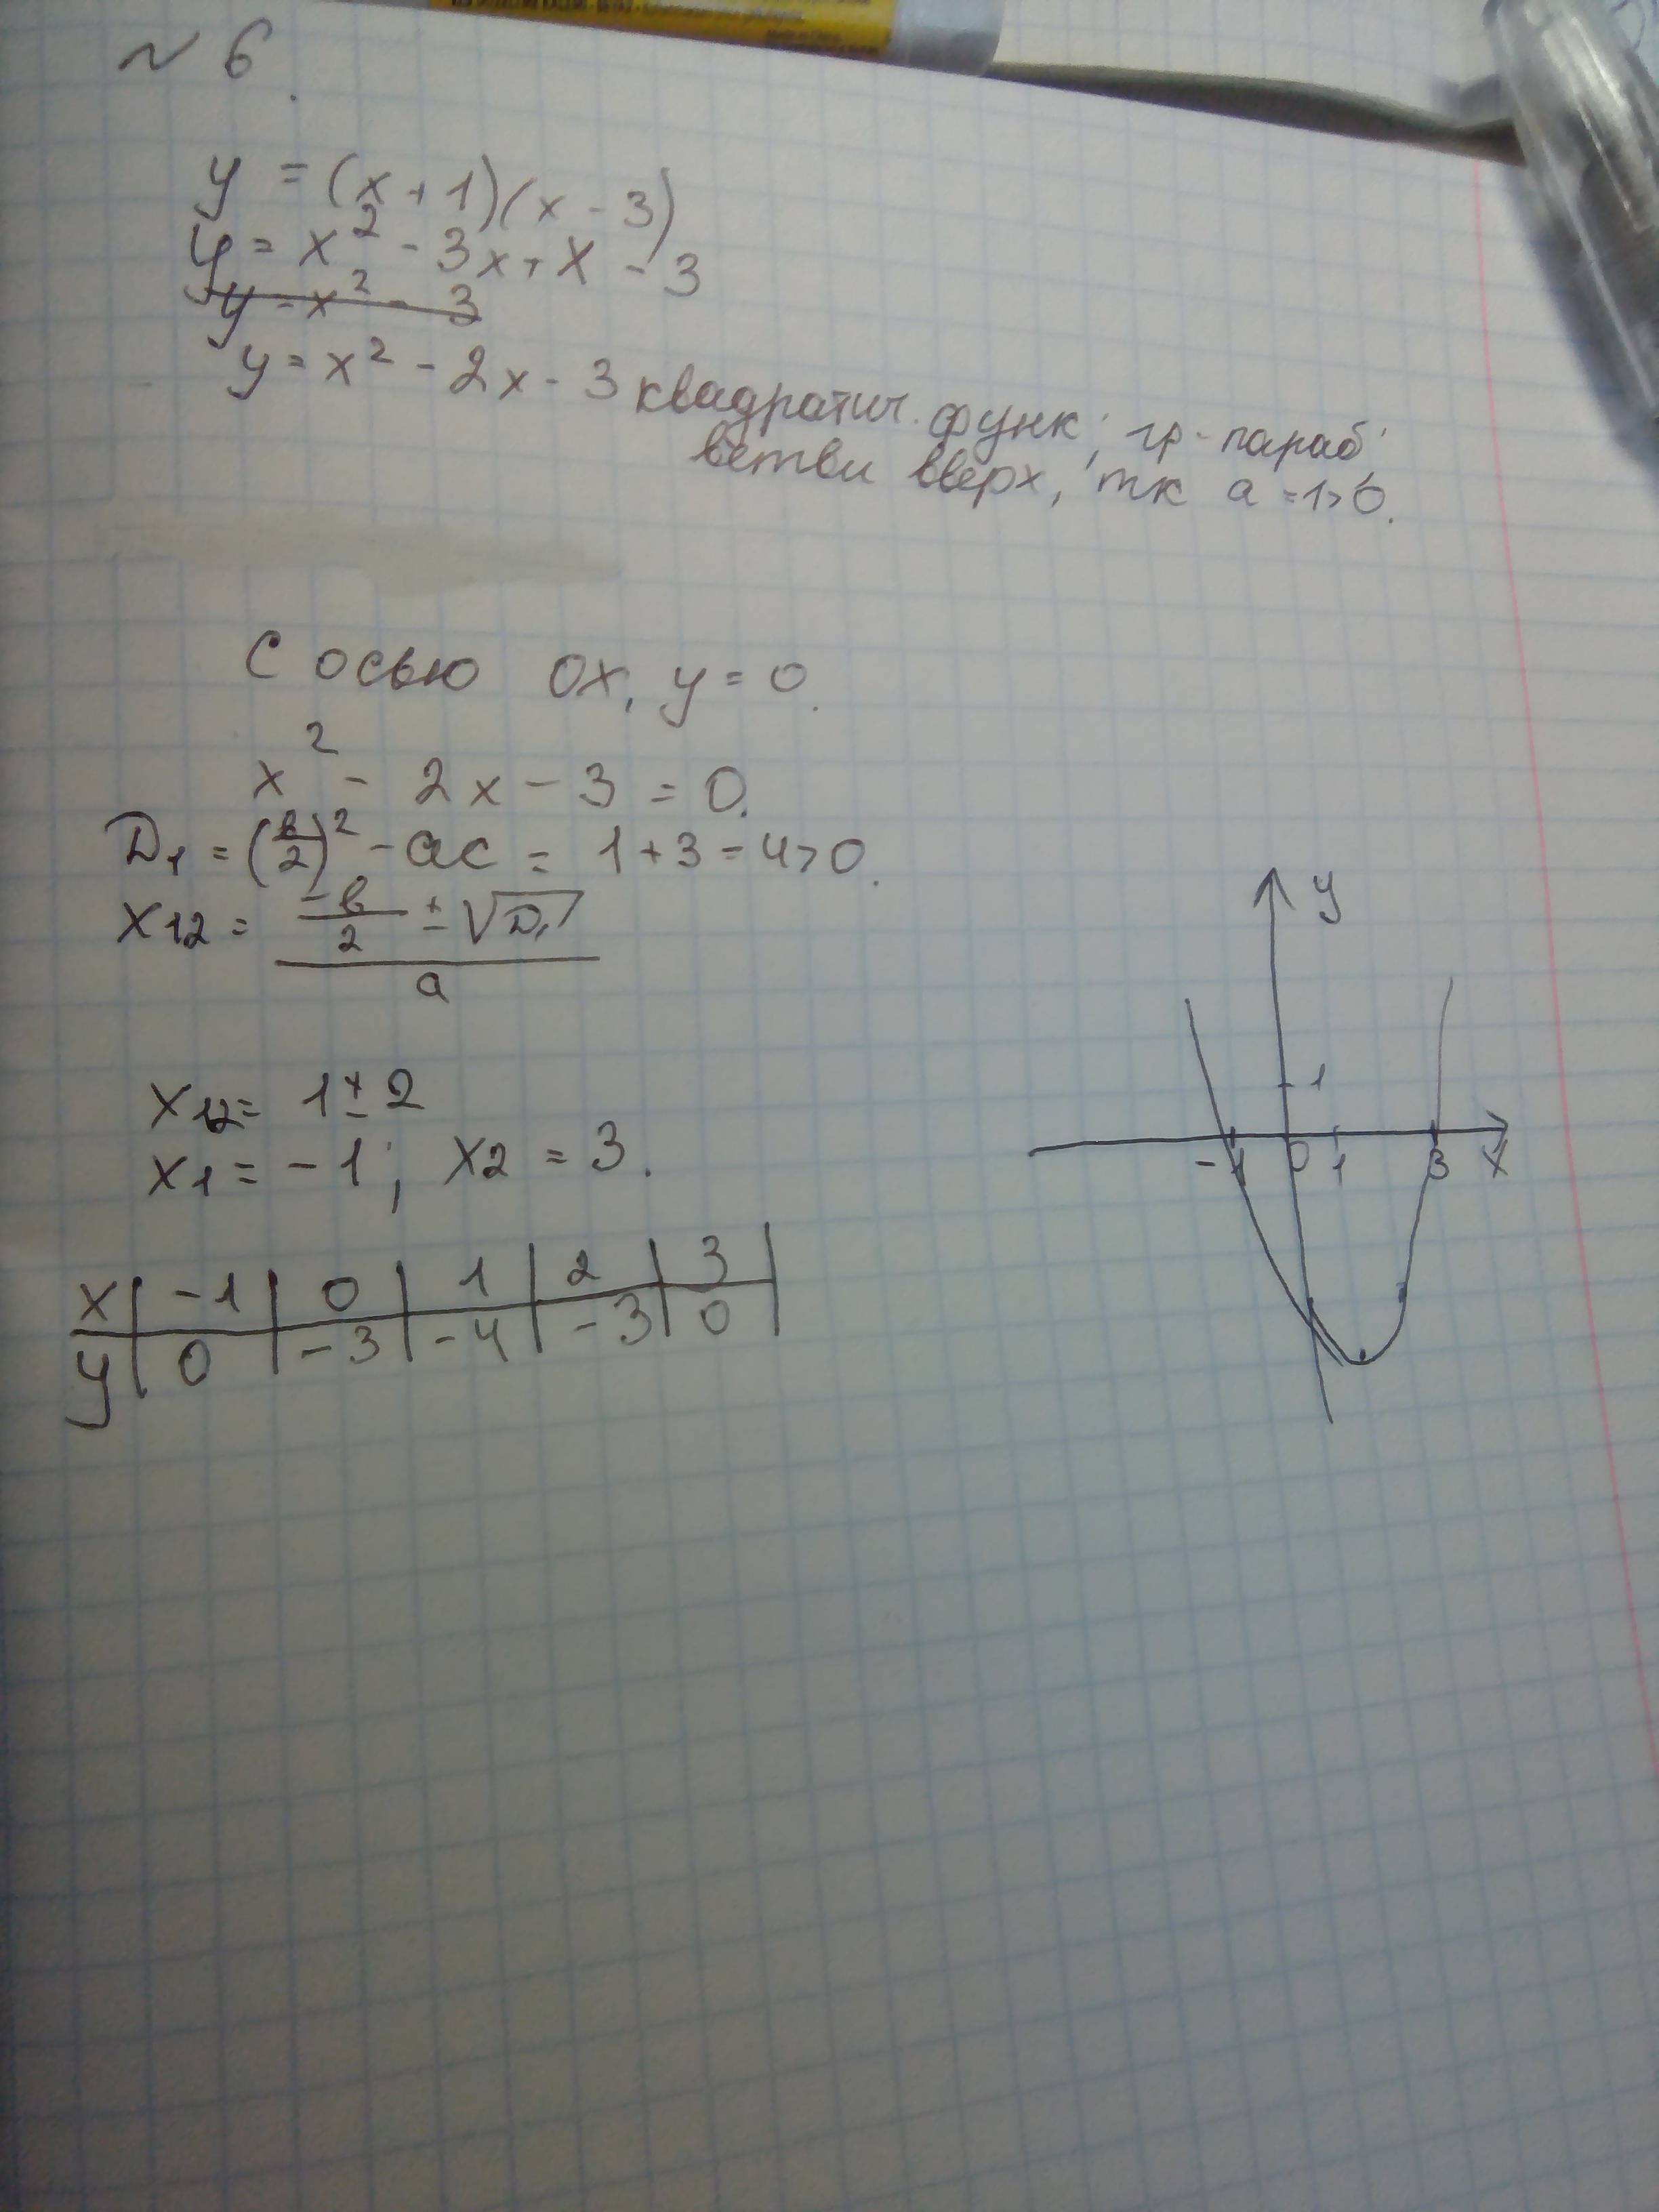 № 6.
y = (x+1)(x-3)
y = x² - 3x + x - 3
y = x² - 3
y = x² - 2x - 3 квадратич. функ; гр-параб
ветви вверх, тк a = 1>0.
С осью OX, y = 0.
x² - 2x - 3 = 0.
D₁ = (в/2)² - ac = 1+3 = 4>0.
x₁₂ = (-в/2 ± √D₁)/a
x₁₂ = 1 ± 2
x₁ = -1; x₂ = 3.
x | -1 | 0 | 1 | 2 | 3 |
y | 0 | -3 | -4 | -3 | 0 |
y
1
-1 0 1 3 x